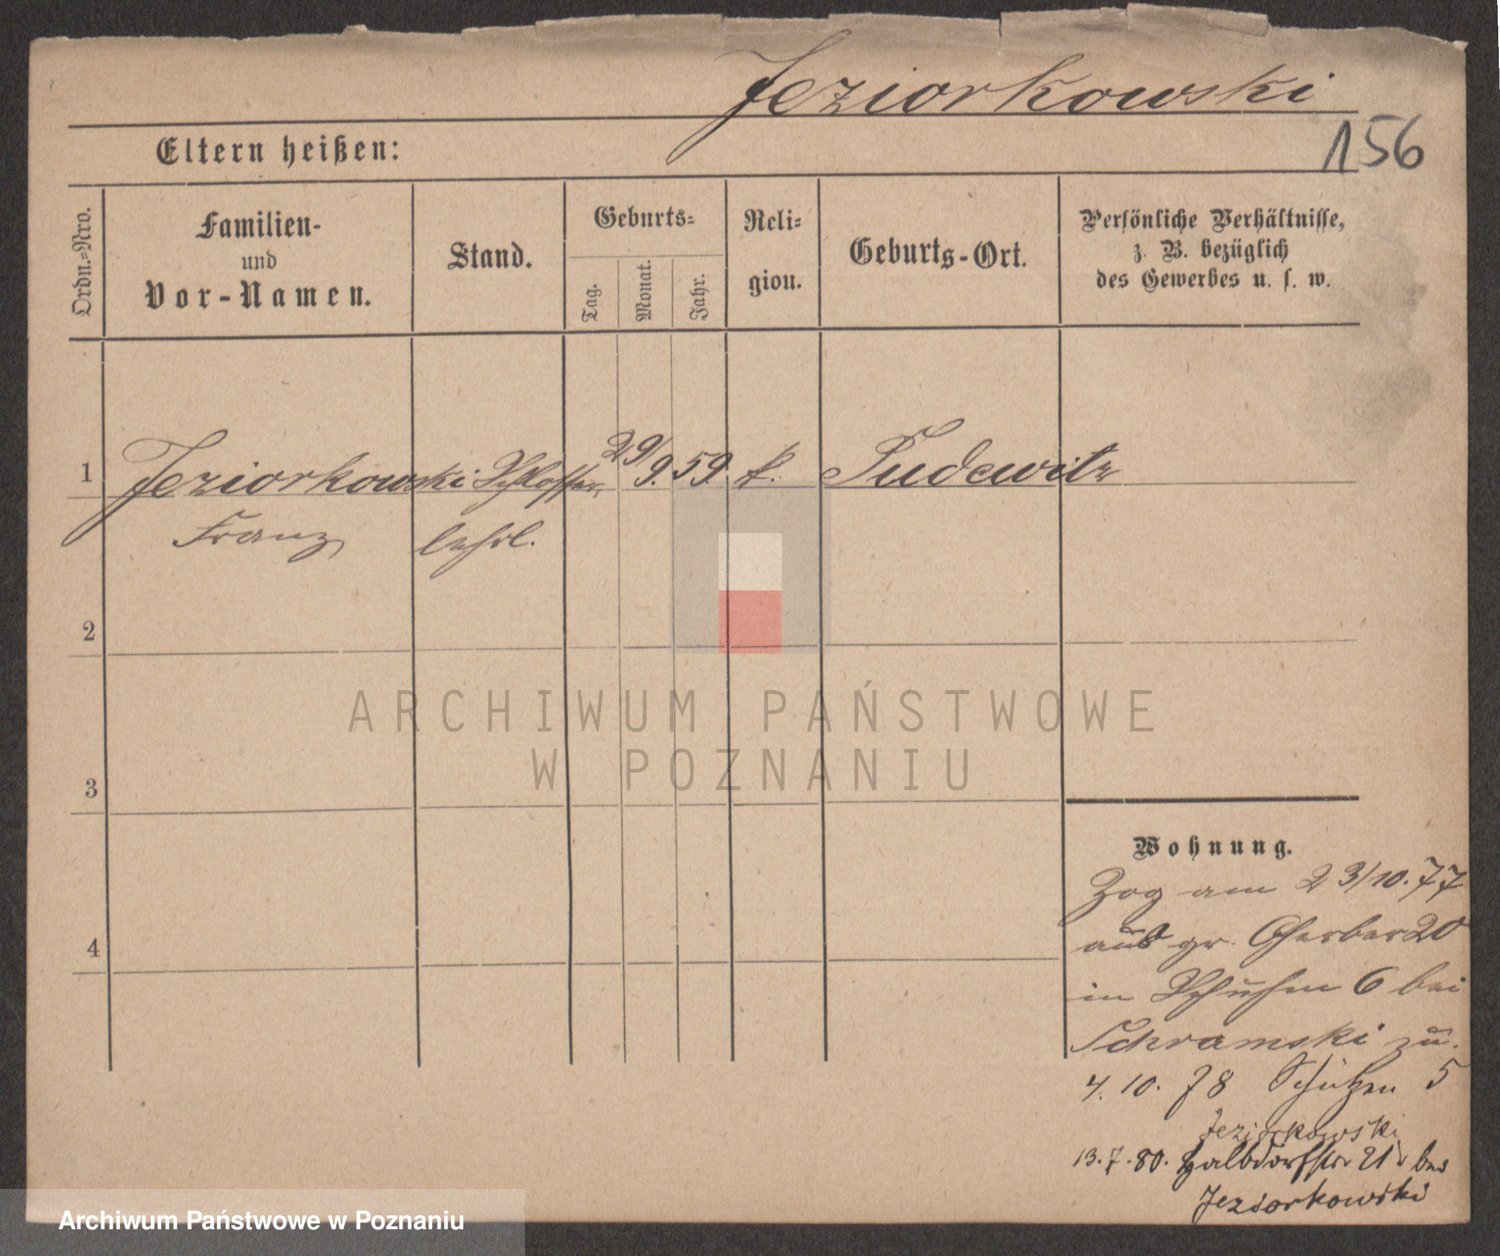 Jeziorkowski
156
Eltern heißen:
Ordn.=Nro.
Familien-
und
Vor-Namen.
Stand.
Geburts=
Tag.
Monat.
Jahr.
Reli=
gion.
Geburts-Ort.
Persönliche Verhältnisse,
z. B. bezüglich
des Gewerbes u. s. w.
1 Jeziorkowski Schlosser 29/ 9. 59. k. Pudewitz
Franz lehrl.
2
3
4
ARCHIWUM PAŃSTWOWE
W POZNANIU
Wohnung.
Zog am 23/10.77
aus gr. Gerber 20
in Schuhm 6 bei
Schramski zu.
4. 10. 78 Schützen 5
Jeziorkowski
13.7.80. Halbdorfstr 21 bei
Jeziorkowski
Archiwum Państwowe w Poznaniu